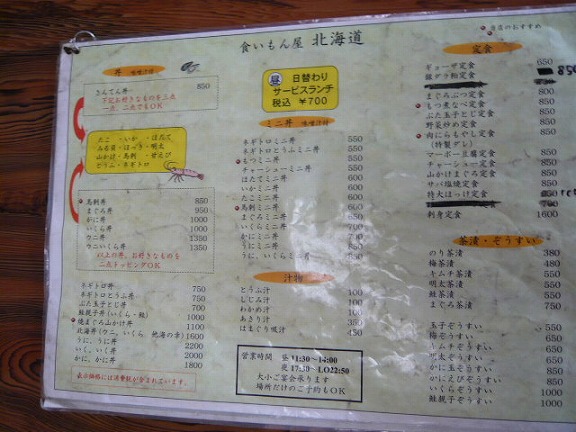 食いもん屋 北海道
丼 味噌汁付
きんてん丼 850
下記お好きなものを三点
一点、二点でもOK
たこ・いか・ほたて
山かけ・馬刺・甘えび
とうふ・ネギトロ
馬刺丼 850
まぐろ丼 950
かに丼 1000
いくら丼 1000
ウニ丼 1350
ウニいくら丼 1350
以上の丼、お好きなものを
二点トッピングOK
ネギトロ丼 750
ネギトロとうふ丼 750
ぶた玉子とじ丼 700
鮭親子丼(いくら・鮭) 1000
焼まぐろ山かけ丼 1100
北海丼(ウニ、いくら 他海の幸) 1600
うに、うに丼 2200
いく、いく丼 2000
かに、かに丼 1800
表示価格には消費税が含まれています。
昼 日替わり
サービスランチ
税込 ¥700
ミニ丼 味噌汁付
ネギトロミニ丼 550
ネギトロとうふミニ丼 550
もつミニ丼 550
チャーシューミニ丼 550
ほたてミニ丼 600
いかミニ丼 600
たこミニ丼 600
馬刺ミニ丼
まぐろミニ丼 650
いくらミニ丼
かにミニ丼
うにミニ丼 850
うに、いくらミニ丼 850
汁物
とうふ汁 100
しじみ汁 100
わかめ汁 100
あさり汁 350
はまぐり吸汁 450
営業時間 昼 11:30〜14:00
夜 17:30〜L.O22:50
大小ご宴会承ります
場所だけのご予約もOK
当店のおすすめ
定食
ギョーザ定食 650
銀ダラ粕定食
まぐろぶつ定食 800
もつ煮なべ定食 800
ぶた玉子とじ定食 800
野菜炒め定食 800
肉にらもやし定食 850
(特製ダレ)
マーボー豆腐定食 850
チャーシュー定食 850
山かけまぐろ定食 850
サバ塩焼定食 850
特大ほっけ定食
刺身定食 1600
茶漬・ぞうすい
のり茶漬 380
梅茶漬 480
キムチ茶漬 500
明太茶漬 550
鮭茶漬 550
まぐろ茶漬 650
玉子ぞうすい 550
梅ぞうすい 650
キムチぞうすい 650
明太ぞうすい 650
かに玉ぞうすい 650
かにえびぞうすい 650
いくらぞうすい 650
鮭親子ぞうすい 850